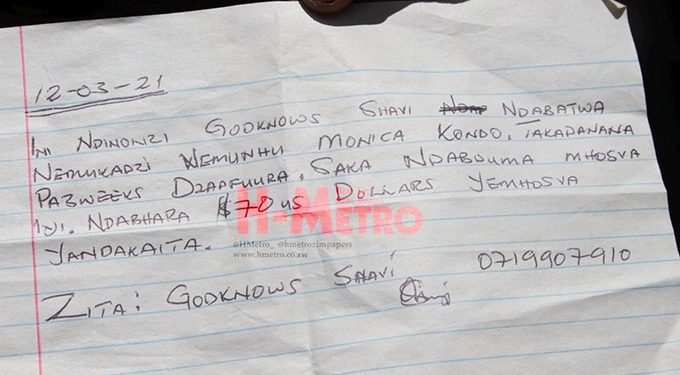 12-03-21
INI NDINONZI GODKNOWS SHAVI NDABATWA
NEMUKADZI WEMUNHU MONICA KONDO. TAKADANANA
PAZWEEKS DZAPFUURA. SAKA NDABDUMA MHOSVA
INI. NDABHARA $70 US DOLLARS YEMHOSVA
YANDAKAITA.
H-METRO
@HMetro_ @hmetrozimpapers
www.hmetro.co.zw
ZITA: GODKNOWS SHAVI 0719907910